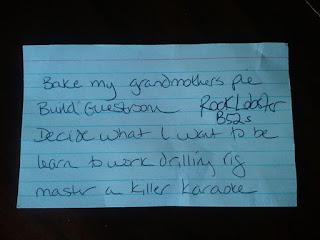 Bake my grandmothers pie
Build Guestroom
Rock Lobster
B52s
Decide what I want to be
learn to work drilling rig
master a killer karaoke